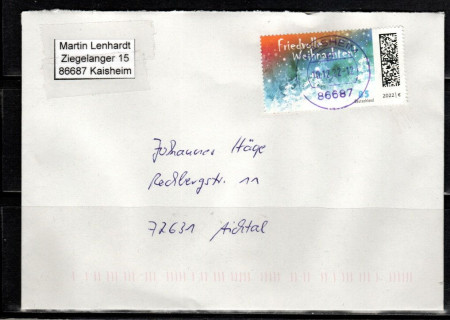 Martin Lenhardt
Ziegelanger 15
86687 Kaisheim
Friedvolle
Weihnachten
86687
85
Deutschland
2022 | €
Johannes Häge
Rechbergstr. 11
72631 Aichtal